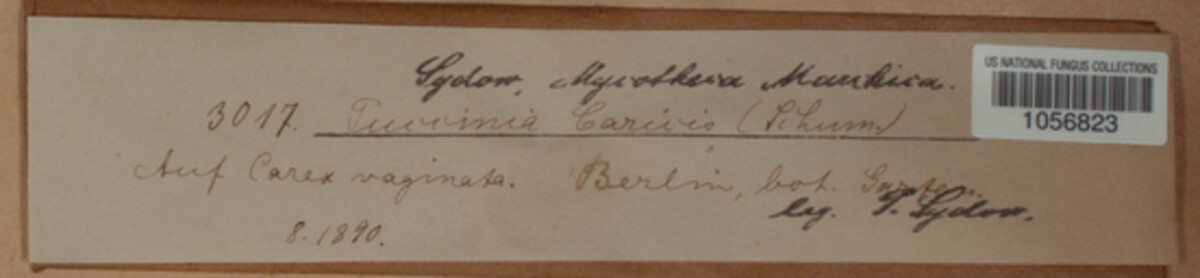 Sydow, Mycotheca Marchica.
US NATIONAL FUNGUS COLLECTIONS
1056823
3017. Puccinia Caricis (Schum.)
Auf Carex vaginata. Berlin, bot. Garten.
leg. P. Sydow.
8.1890.